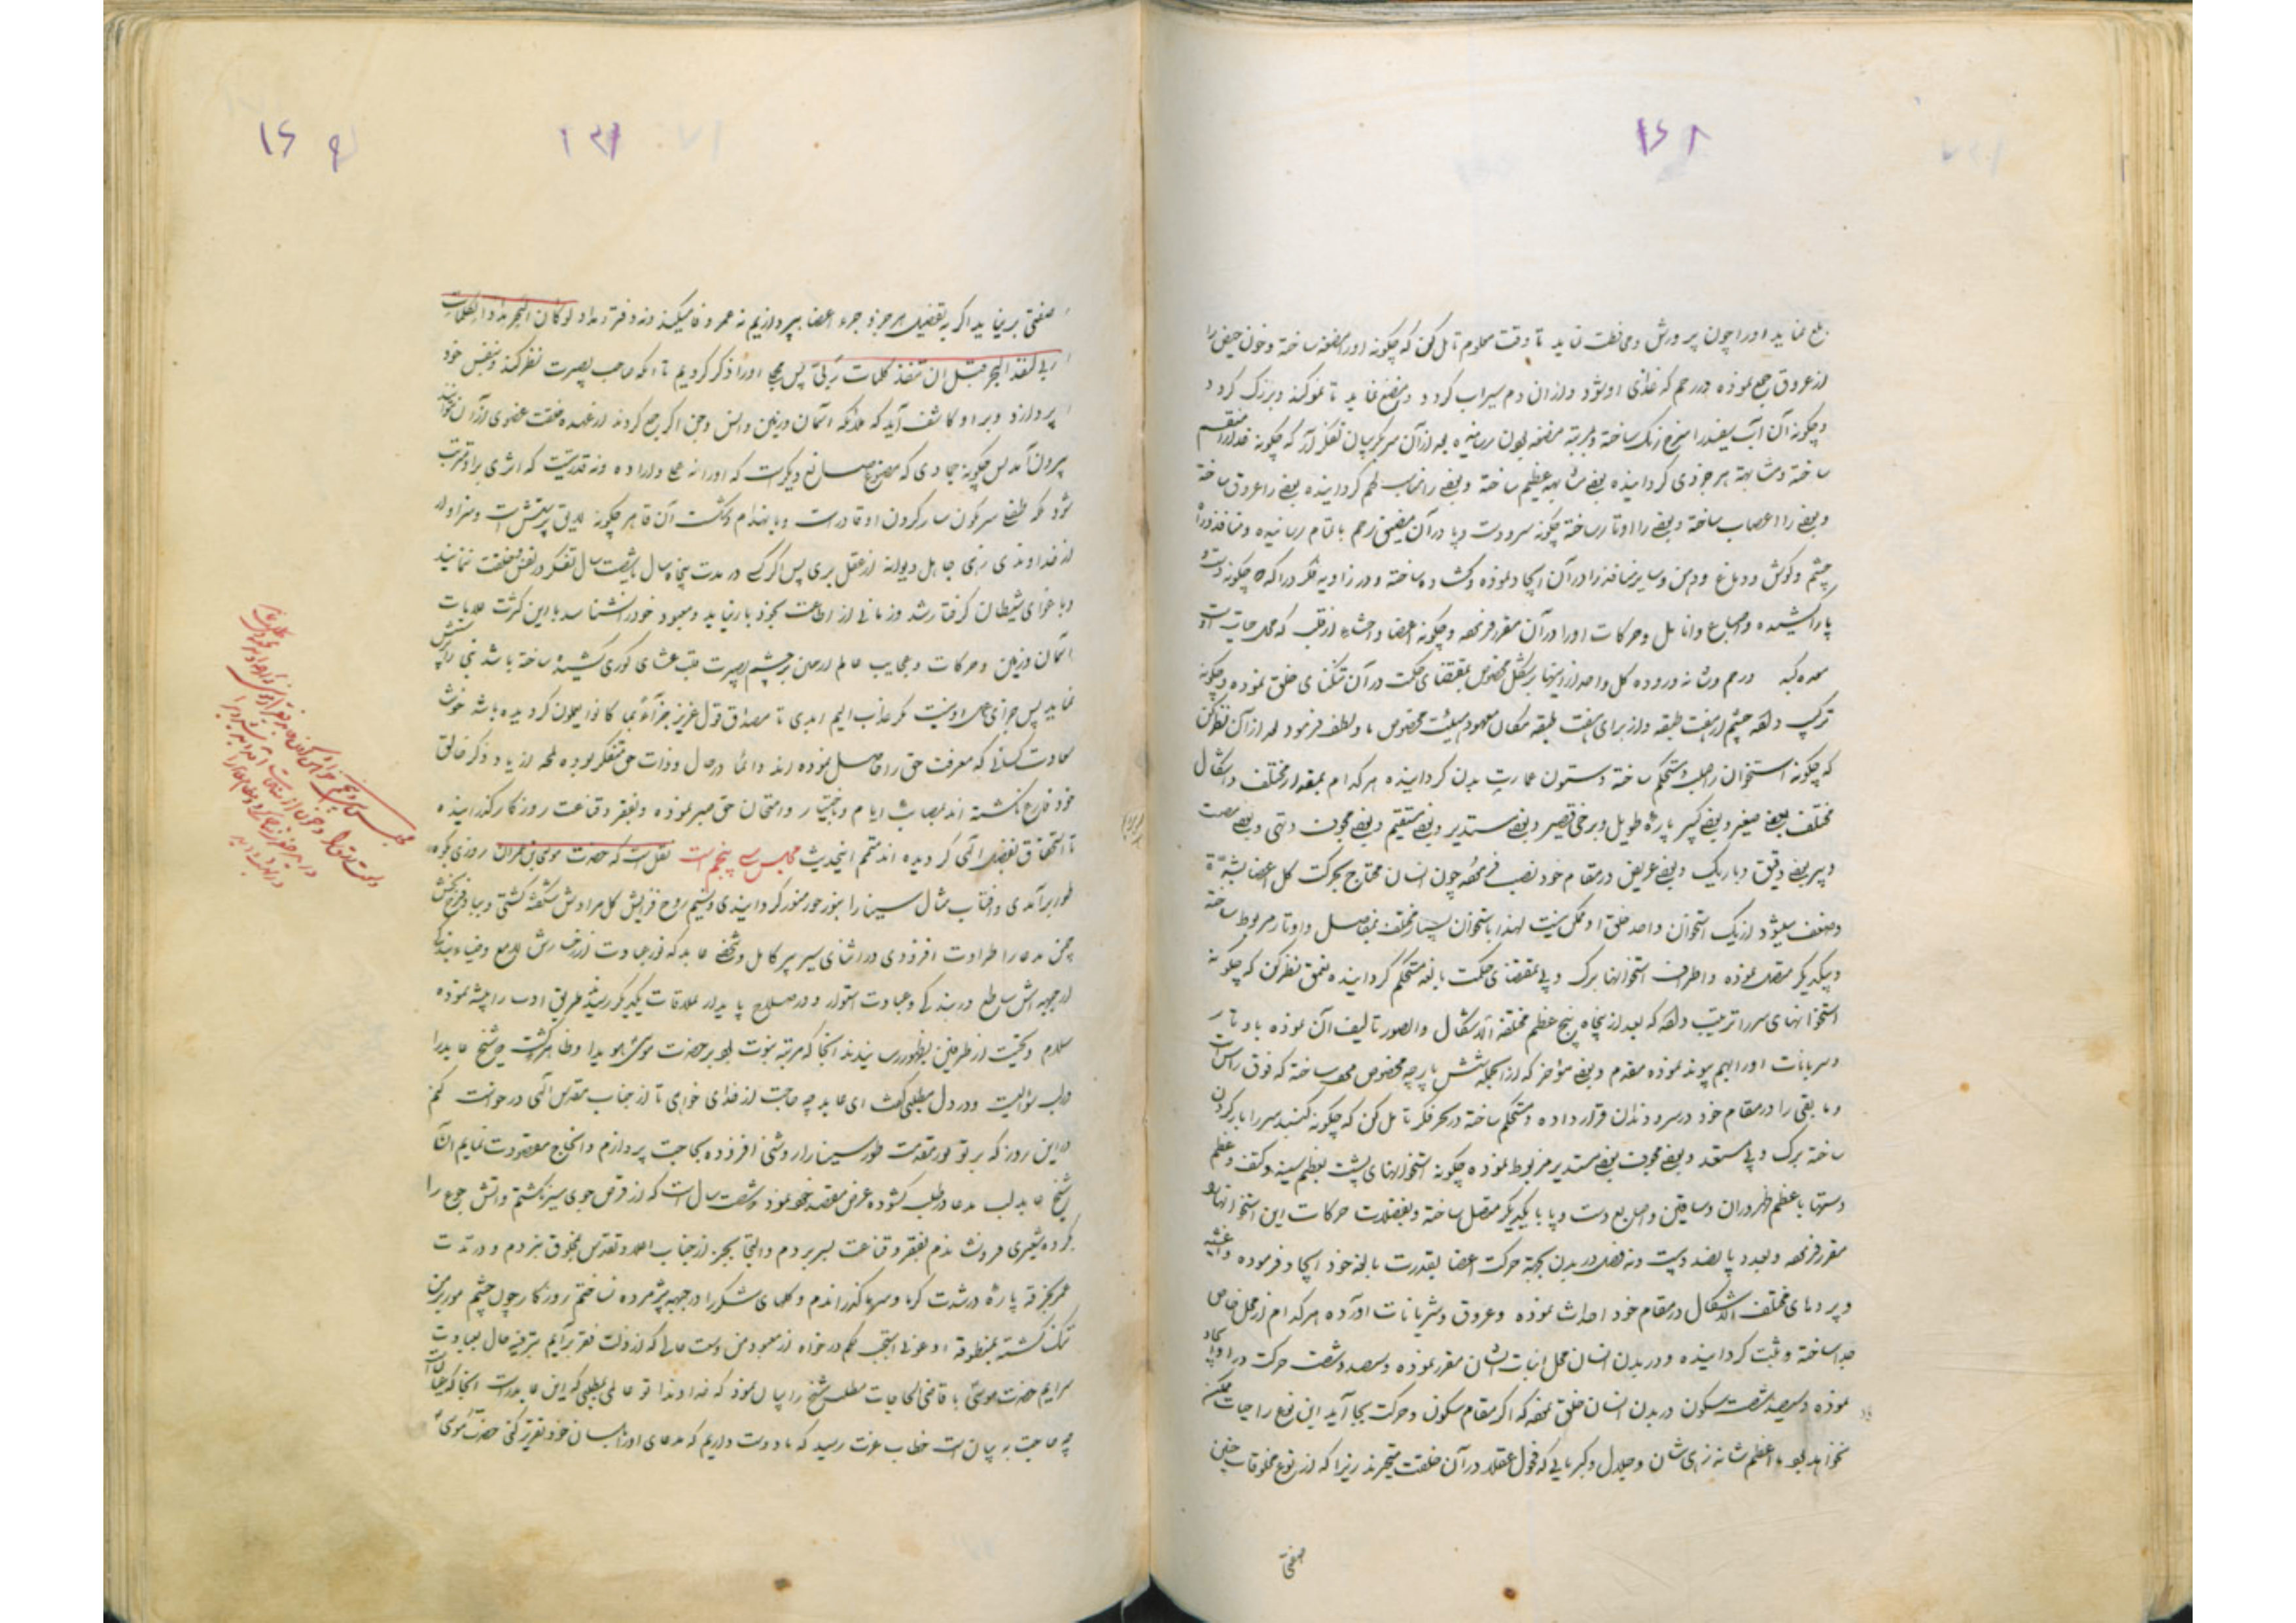 ۱۶۸
بلع نماید او را چون پرورش و محافظت نماید تا وقت معلوم تأمل کن که چگونه او را مضغه ساخته و خون حیض را
از عروق جمع نموده در رحم که غذای او شود و از آن دم سیراب گردد و مضغ نماید تا نمو کند و بزرگ گردد
و چگونه آن آب سفید را سرخ رنگ ساخته و بمرتبه مضغه بودن رسانیده بعد از آن سر بگریبان تفکر آر که چگونه
ساخته و مشابهة هر جزوی گردانیده بعضی مشابهه عظیم ساخته و بعضی را لحم گردانیده بعضی را عروق ساخته
و بعضی را اعصاب ساخته و بعضی را اوتار ساخته چگونه سر و دست و پا در آن مضیق رحم باتمام رسانیده و منافذ
چشم و گوش و دماغ و دهن و سایر منافذ را در آن ایجاد نموده و گشاده ساخته و در زاویه فکر درآ که چگونه دست و
پا را کشیده و اصابع و انامل و حرکات او را در آن مقرر فرموده و چگونه اعضا و احشاء از قلب که محل حیات است
معده کبد و رحم و مثانه و روده کل واحد از اینها بشکل مخصوص بمقتضای حکمت در آن تنگنای خلق نموده و چگونه
ترکیب داده چشم از هفت طبقه و از برای هفت طبقه مکان معهود و هیئت مخصوص لطف فرموده بعد از آن نظر کن
که چگونه استخوان را صلب و مستحکم ساخته و ستون عمارت بدن گردانیده هر کدام بمقدار مختلف و اشکال
مختلف بعضی صغیر و بعضی کبیر پاره طویل و برخی قصیر و بعضی مستدیر و بعضی مستقیم و بعضی مجوف و تهی و بعضی مصمت
و پر بعضی دقیق و باریک و بعضی عریض در مقام خود نصب فرموده چون انسان محتاج بحرکت کل اعضا
و ضعف میشود از یک استخوان واحد خلق او ممکن نیست لهذا با استخوان بسیار مختلف بمفاصل و اوتار مربوط ساخته
و بیکدیگر متصل نموده و اطراف استخوانها بزرگ و پی بمقتضای حکمت بالغه مستحکم گردانیده بتعمق نظر کن که چگونه
استخوانهای سر را ترتیب داده که بعد از پنجاه پنج عظم مختلفة الاشکال و الصور تألیف آن نموده باوتار
و شریانات او را بهم پیوند نموده مقدم و بعضی مؤخر که از آنجمله شش پارچه مخصوص ساخته که فوق راس است
و ما بقی را در مقام خود در سر و دندان قرار داده و مستحکم ساخته در بحر فکر تأمل کن که چگونه گنبد سر را بار گردن
ساخته بزرگ و پی مستعد و بعضی مجوف بعضی مستدیر مربوط نموده چگونه استخوانهای پشت بعظم سینه و کتف و عظم
دستها با عظم ظهر و ران و ساقین و اصابع دست و پا با یکدیگر متصل ساخته و بعضلات حرکات این استخوانها
مقرر فرموده و بعدد پانصد و بیست و نه عضله در بدن بجهة حرکت اعضا بقدرت بالغه خود ایجاد فرموده و اغشیه
و پرده‌های مختلف الاشکال در مقام خود احداث نموده و عروق و شریانات آورده هر کدام از محل خاص
جدا ساخته و ثبت گردانیده و در بدن انسان محل اثبات ایشان مقرر نموده و سیصد و شصت حرکت در او ایجاد
نموده و سیصد و شصت سکون در بدن انسان خلق نموده که اگر مقام سکون و حرکت بجا آید این نوع را حیات ممکن
نخواهد بود ما اعظم شانه زهی شان و جلال و کبریایی که فحول عقلا در آن خلقت متحیرند زیرا که از نوع مخلوقات چنین
صفتی
۱۶۹
صفتی بر نیاید اگر به تفصیل هر جزو جزء اعضا بپردازیم نه عمر وفا میکند و نه دفتر و مداد لو کان البحر مدادا لکلمات
ربی لنفد البحر قبل ان تنفد کلمات ربی پس مجملا او را ذکر کردیم تا آنکه صاحب بصیرت نظر کند و بنفس خود
پردازد و بر او کاشف آید که ملائکه آسمان و زمین و انس و جن اگر جمع گردند از عهده خلقت عضوی از آن نتوانند
بیرون آمد پس چگونه جمادی که مصنوع صانع دیگر است که او را نه علم و اراده و نه قدرتست که اثری بر او مترتب
شود بلکه طفلی سرنگون ساز کردن او قادر است و بانهدام و شکست آن قاهر چگونه لایق پرستش است و سزاوار
از خداوندی زهی جاهل دیوانه از عقل بری پس اگر کسی در مدت پنجاه سال یا شصت سال تفکر در نفس و خلقت ننماید
و باغوای شیطان گرفتار شد و زمانی از اطاعت بخود باز نیاید و معبود خود را نشناسد با این کثرت علامات
آسمان و زمین و حرکات و عجایب عالم از بر چشم بصیرت غشای کوری کشیده ساخته باشد بتی را پرستش
نماید پس جزای عمل او نیست مگر عذاب الیم ابدی تا مصداق قول عزیز جزاء بما کانوا یعملون گردیده باشد خوشا
سعادت کسانی که معرفت حق را حاصل نموده‌اند دائما در حال و ذات حق متفکر بوده لمحه از یاد و ذکر خالق
خود فارغ نگشته‌اند بمصایب ایام و اختیار و امتحان حق صبر نموده و بفقر و قناعت روزگار گذرانیده
تا استحقاق بفضل الهی گردیده‌اند متمم اینحدیث مجلس سی پنجم است نقل است که حضرت موسی بن عمران روزی بکوه
طور برآمدی و آفتاب مثال سینا را بنور حور منور گردانیدی و نسیم روح فزایش گل مرادش شکفته گشتی و بباد فرح بخش
چمن مدعا را طراوت افزودی در اثنای سیر پیر کامل و شخصی عابد که نور عبادت از رخسارش لامع و ضیاء بندگی
از جبهه‌اش ساطع در بندگی و عبادت استوار و در صلاح پایدار ملاقات یکدیگر رسیده طریق ادب را پیشه نموده
سلام و تحیت از طرفین بظهور رسانیدند آنجا که مرتبه نبوت بود بر حضرت موسی هویدا و ظاهر گشت که شیخ عابد را
در لب سؤالیست و در دل مطلبی گفت ای عابد چه حاجت از خدای خواهی تا از جناب مقدس الهی درخواست کنم
در این روز که بر تو نور مقدمت طور سینا را روشنی افزوده بحاجت پردازم و انجاح مقصودت نمایم آنگاه
شیخ عابد لب مدعا و طلب گشوده عرض مقصد خود نمود و شصت سال است که از قرص جوی سیر نگشتم و آتش جوع را
بگرده شعیری فرو ننشاندم بفقر و قناعت بسر بردم و التجا بجز از جناب احد و تقدس بمخلوق نبردم و در مدت
عمر بخرقه پاره در شدت گرما و سرما گذراندم و گلهای شکر را در جبهه پژمرده نساختم روزگار چون چشم مور بر من
تنگ گشته بمنطوقه ادعونی استجب لکم در خواه از معبود من وسعت حالی که از ذلت فقر برآیم بترفیه حال بعبادت
سرایم حضرت موسی با قاضی الحاجات مطلب شیخ را بیان نمود که خداوندا تو عالمی بمطلبی که این عابد راست آنجا که عیان است
چه حاجت به بیان است خطاب عزت رسید که ما دوست داریم که مدعای او را بلسان خود تقریر کنی حضرت موسی